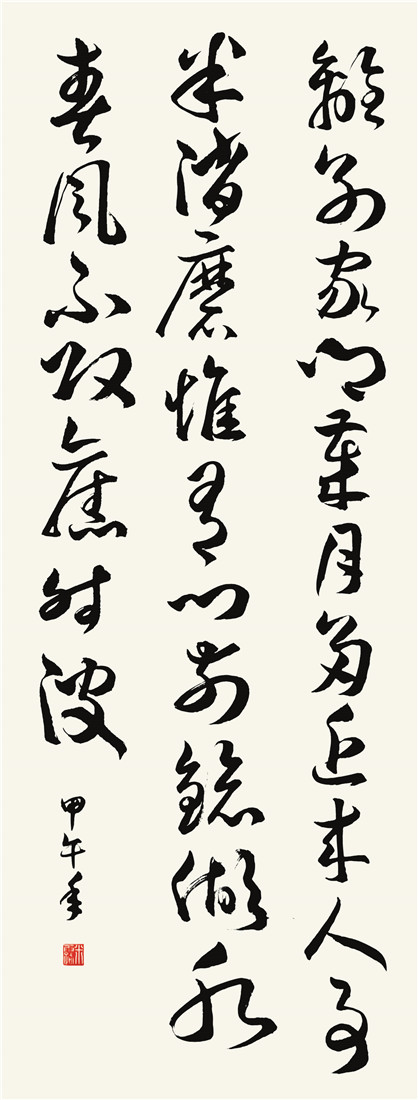 離別家鄉歲月多近來人事
半消磨惟有門前鏡湖水
春風不改舊時波
甲午年